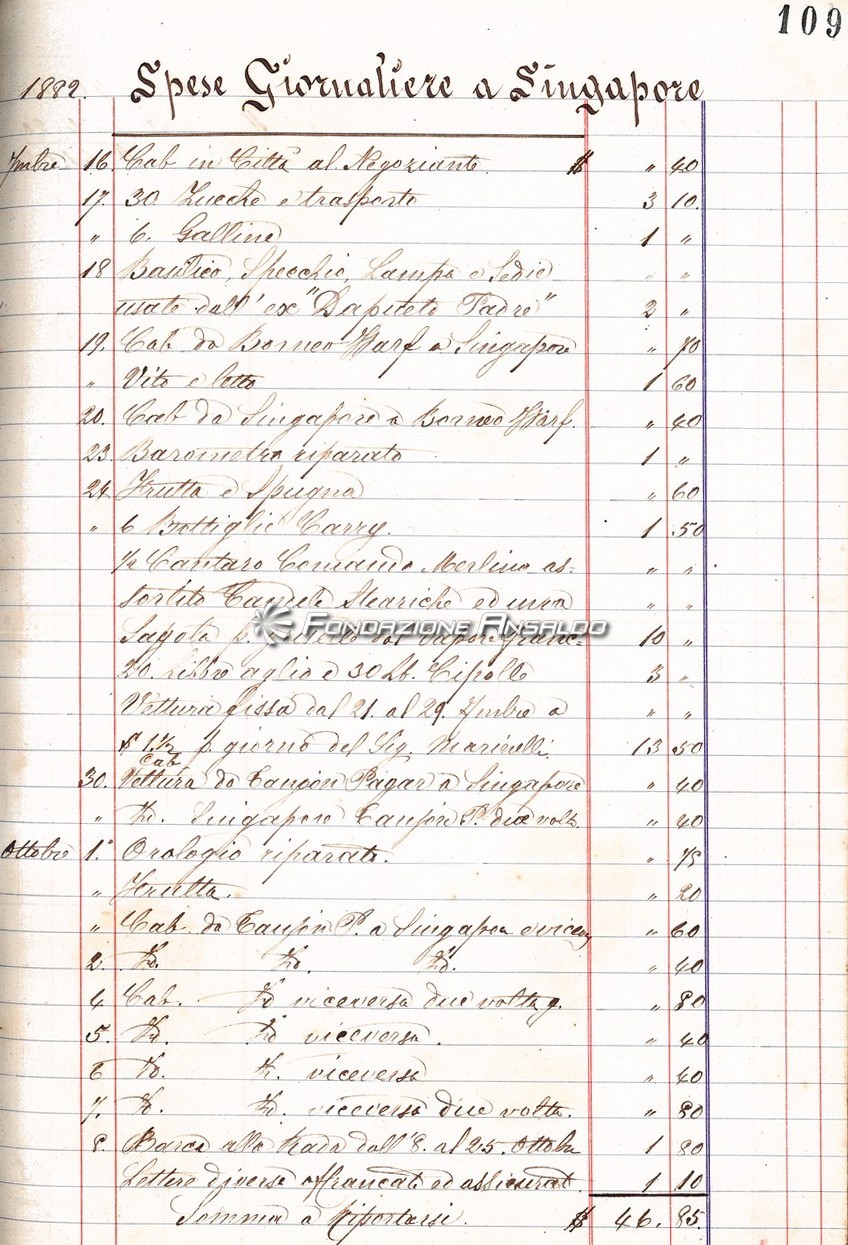 109
1882. Spese Giornaliere a Singapore
7mbre 16. Cab in Città al Negoziante. $ " 40
17. 30. Zucche e trasporto 3 10.
" 6. Galline 1 "
18 Basilico, Specchio, Lampa e Sedie " "
usate dall' ex "Dapueto Padre" 2 "
19. Cab da Borneo Warf a Singapore " 70
" Vito e letto 1 60
20. Cab da Singapore a Borneo Warf. " 40
23 Barometro riparato 1 "
24 Frutta e Spugna " 60
" 6 Bottiglie Carry. 1 50
1/2 Cantaro Comando Merlino as- " "
sortito Candele Steariche ed una " "
Sagola p. dal Vapore 10 "
FONDAZIONE ANSALDO
20. Libbre aglio e 30 Lb. Cipolle 3 "
Vettura fissa dal 21. al 29. 7mbre a " "
$ 1.1/2 p. giorno del Sig. Marinelli 13 50
Cab
30. Vettura da Tanjon Pagar a Singapore " 40
" Do. Singapore Tanjon P. due volte " 40
Ottobre 1.° Orologio riparato. " 75
" Frutta. " 20
" Cab da Tanjon P. a Singapore e vicev " 60
2. Do. Do. Do. " 40
4 Cab. Do viceversa due volte " 80
5. Do. Do viceversa. " 40
6 Do. Do. viceversa " 40
7. Do. Do. viceversa due volte. " 80
8. Barca alla Rada dall' 8. al 25. Ottobre 1 80
Lettere diverse affrancate ed assicurat. 1 10
Somma a Riportarsi. $ 46. 85.